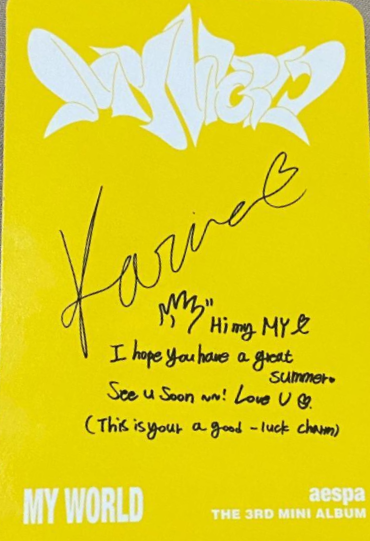 MY WORLD
Karina♡
Hi my MY♡
I hope you have a great
summer.
See u soon ~~! Love U ♡.
(This is your a good-luck charm)
MY WORLD
aespa
THE 3RD MINI ALBUM